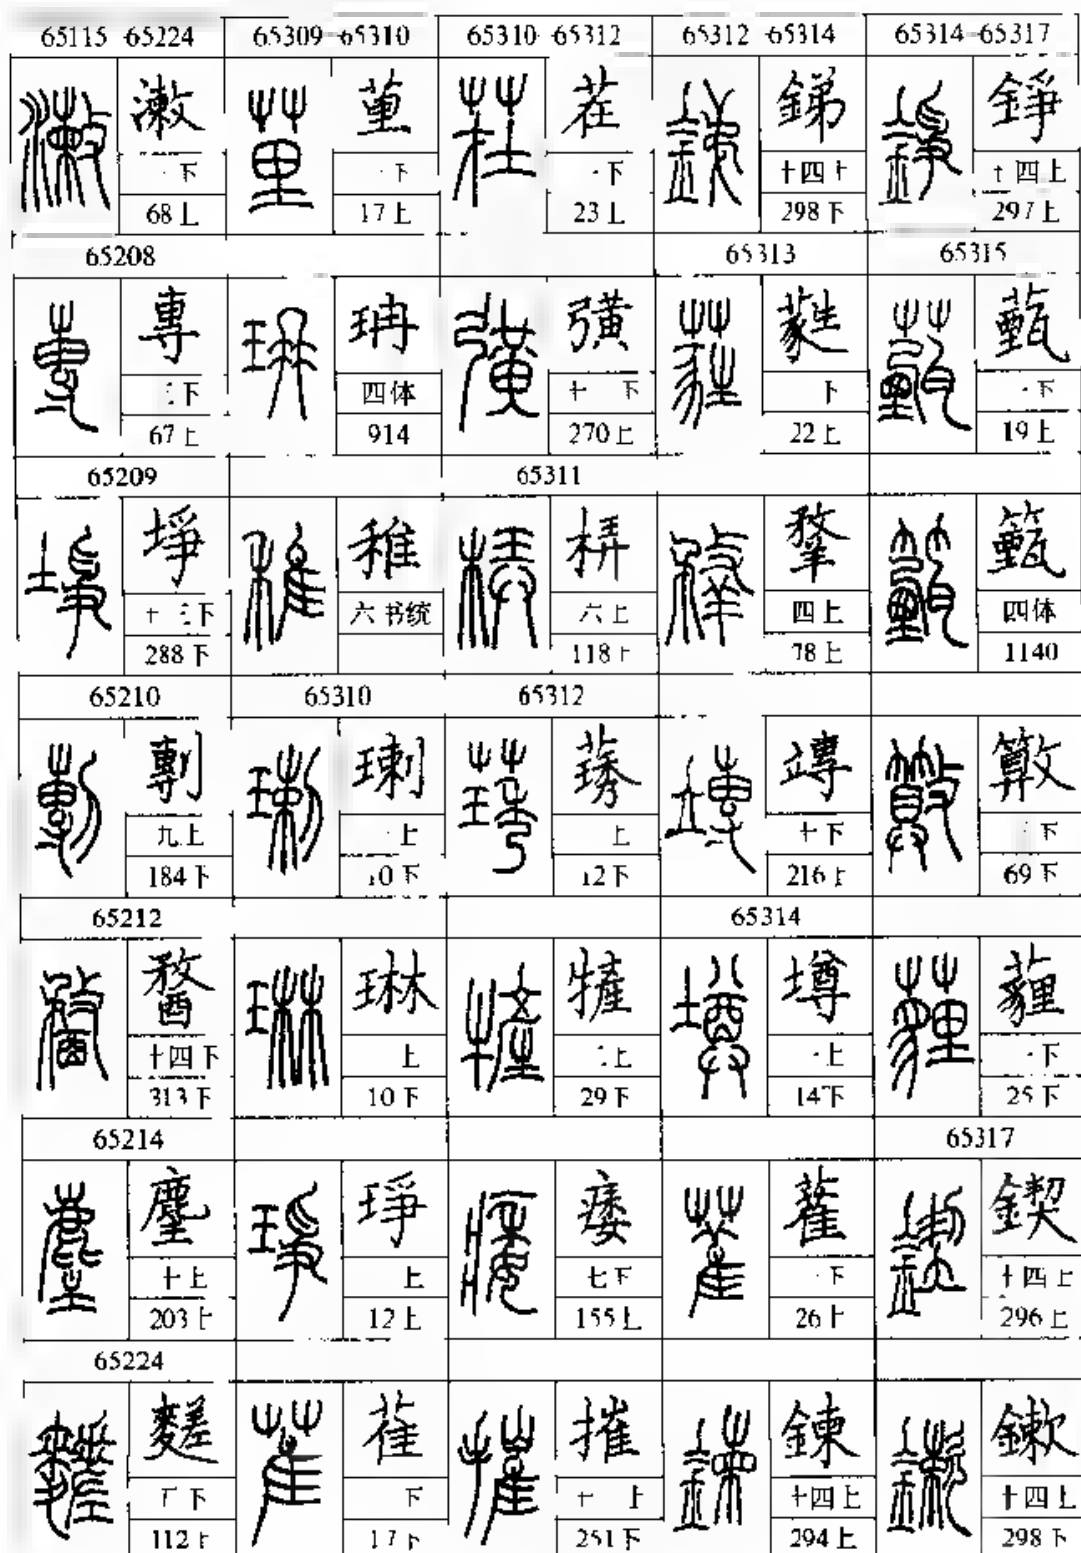 65115-65224
漱
一下
68上
65208
專
三下
67上
65209
埩
十三下
288下
65210
剸
九上
184下
65212
十四下
313下
65214
麈
十上
203上
65224
112上
65309-65310
菫
一下
17上
珃
四体
914
稚
六书统
65310
瑓
上
10下
琳
上
10下
琤
上
12上
萑
下
17下
65310-65312
茬
一下
23上
彉
十二下
270上
65311
梇
六上
118上
65312
莠
上
12下
㹌
二上
29下
痿
七下
155上
摧
十二上
251下
65312-65314
銻
十四上
298下
65313
下
22上
四上
78上
竱
十下
216上
65314
墫
一上
14下
雚
一下
26上
鍊
十四上
294上
65314-65317
錚
十四上
297上
65315
一下
19上
四体
1140
69下
薶
一下
25下
65317
鍥
十四上
296上
鏉
十四上
298下